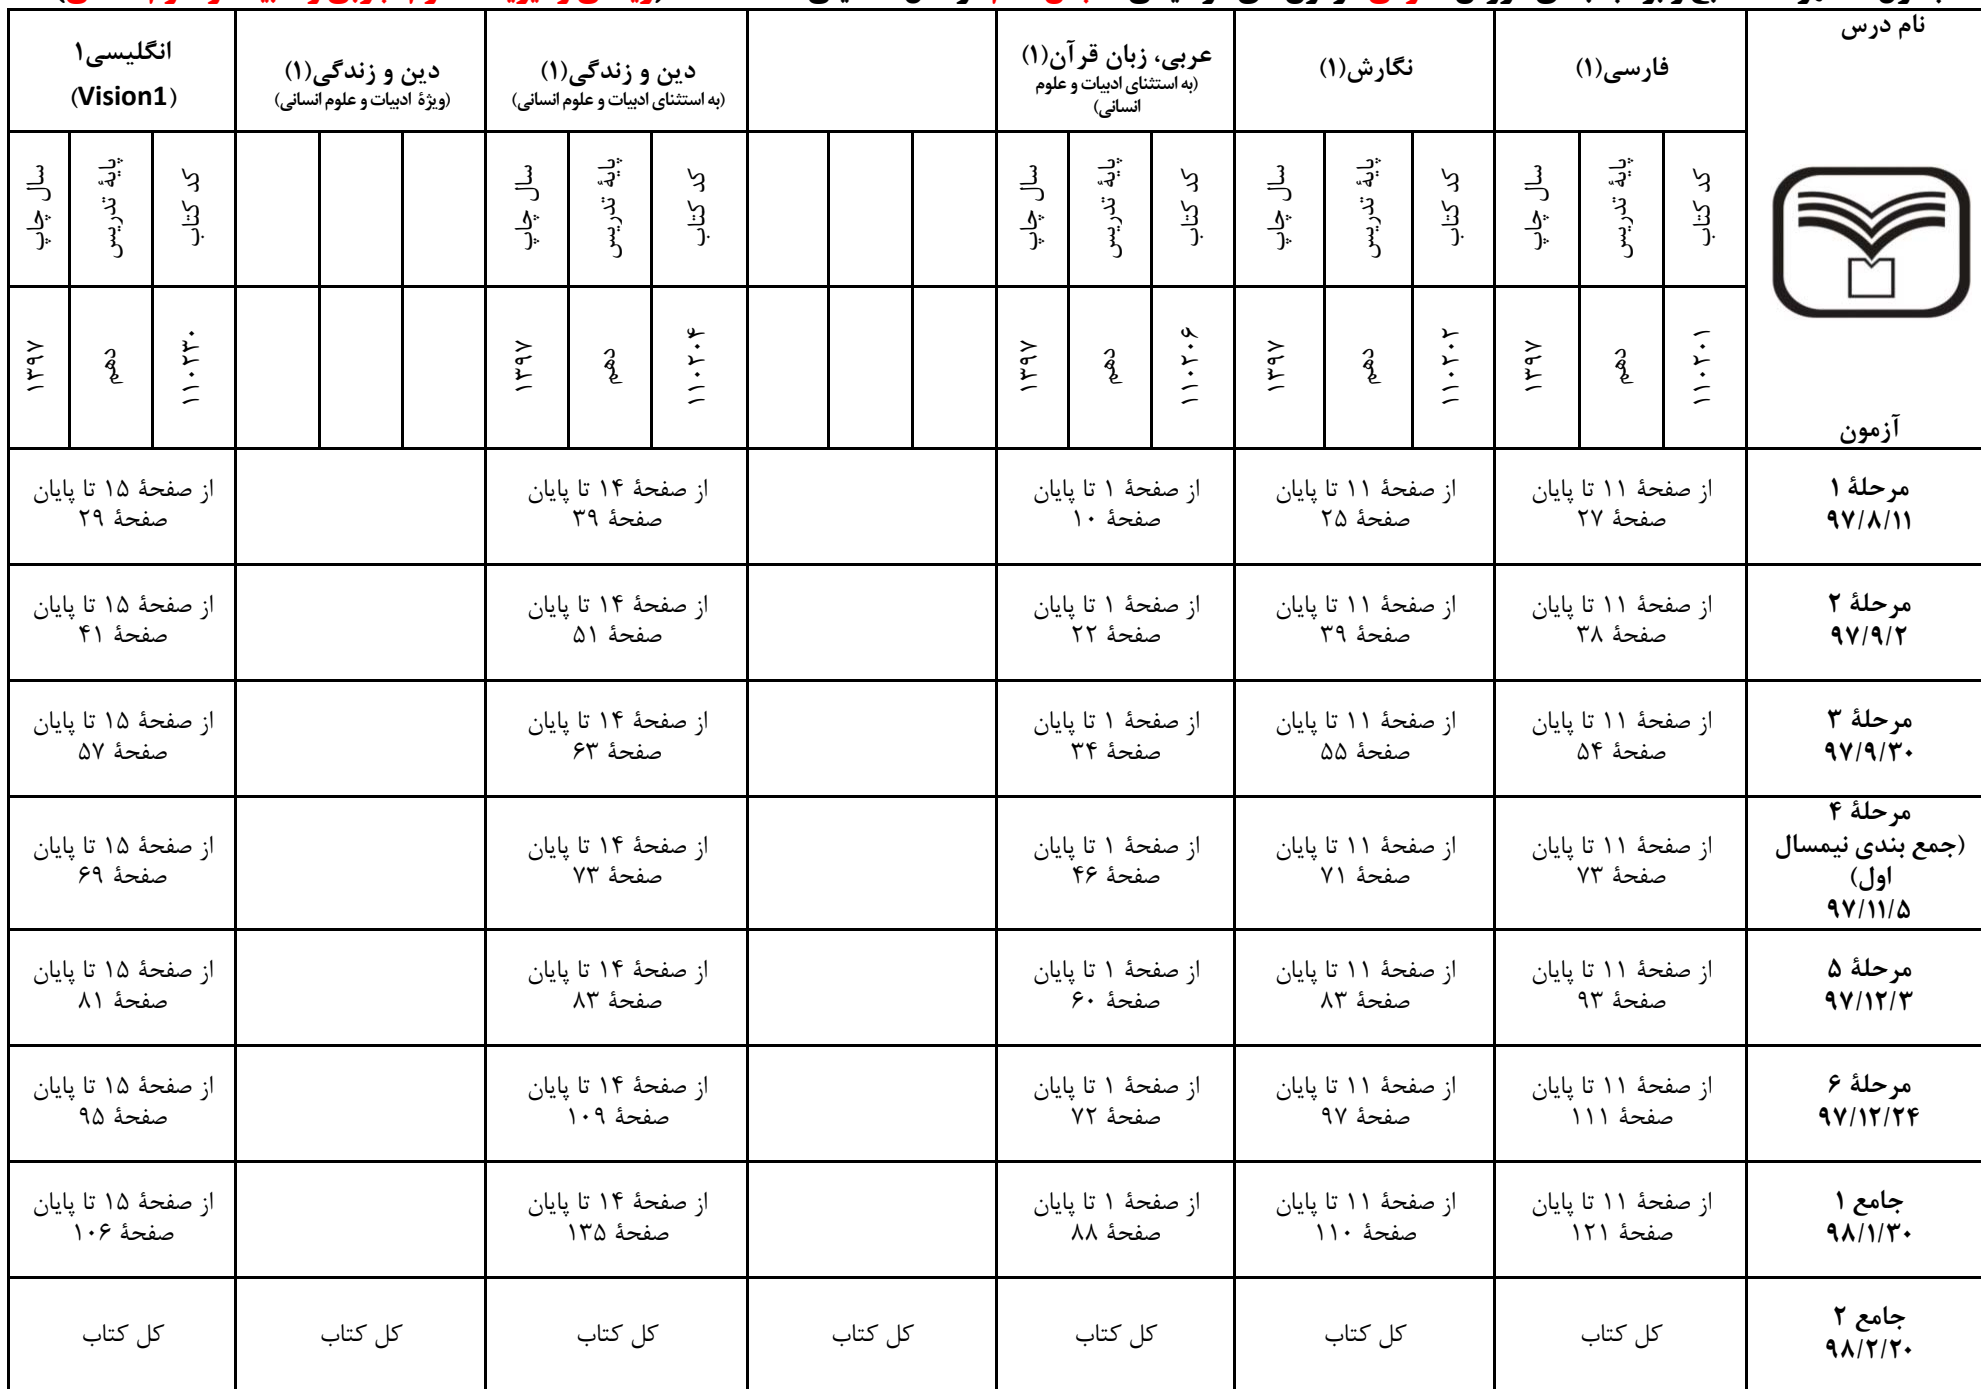 نام درس
فارسی(۱)
نگارش(۱)
عربی، زبان قرآن(۱)
(به استثنای ادبیات و علوم
انسانی)
دین و زندگی(۱)
(به استثنای ادبیات و علوم انسانی)
دین و زندگی(۱)
(ویژۀ ادبیات و علوم انسانی)
انگلیسی۱
(Vision1)
کد کتاب
پایۀ تدریس
سال چاپ
کد کتاب
پایۀ تدریس
سال چاپ
کد کتاب
پایۀ تدریس
سال چاپ
کد کتاب
پایۀ تدریس
سال چاپ
کد کتاب
پایۀ تدریس
سال چاپ
۱۱۰۲۰۱
دهم
۱۳۹۷
۱۱۰۲۰۲
دهم
۱۳۹۷
۱۱۰۲۰۶
دهم
۱۳۹۷
۱۱۰۲۰۴
دهم
۱۳۹۷
۱۱۰۲۳۰
دهم
۱۳۹۷
آزمون
مرحلۀ ۱
۹۷/۸/۱۱
از صفحۀ ۱۱ تا پایان
صفحۀ ۲۷
از صفحۀ ۱۱ تا پایان
صفحۀ ۲۵
از صفحۀ ۱ تا پایان
صفحۀ ۱۰
از صفحۀ ۱۴ تا پایان
صفحۀ ۳۹
از صفحۀ ۱۵ تا پایان
صفحۀ ۲۹
مرحلۀ ۲
۹۷/۹/۲
از صفحۀ ۱۱ تا پایان
صفحۀ ۳۸
از صفحۀ ۱۱ تا پایان
صفحۀ ۳۹
از صفحۀ ۱ تا پایان
صفحۀ ۲۲
از صفحۀ ۱۴ تا پایان
صفحۀ ۵۱
از صفحۀ ۱۵ تا پایان
صفحۀ ۴۱
مرحلۀ ۳
۹۷/۹/۳۰
از صفحۀ ۱۱ تا پایان
صفحۀ ۵۴
از صفحۀ ۱۱ تا پایان
صفحۀ ۵۵
از صفحۀ ۱ تا پایان
صفحۀ ۳۴
از صفحۀ ۱۴ تا پایان
صفحۀ ۶۳
از صفحۀ ۱۵ تا پایان
صفحۀ ۵۷
مرحلۀ ۴
(جمع بندی نیمسال
اول)
۹۷/۱۱/۵
از صفحۀ ۱۱ تا پایان
صفحۀ ۷۳
از صفحۀ ۱۱ تا پایان
صفحۀ ۷۱
از صفحۀ ۱ تا پایان
صفحۀ ۴۶
از صفحۀ ۱۴ تا پایان
صفحۀ ۷۳
از صفحۀ ۱۵ تا پایان
صفحۀ ۶۹
مرحلۀ ۵
۹۷/۱۲/۳
از صفحۀ ۱۱ تا پایان
صفحۀ ۹۳
از صفحۀ ۱۱ تا پایان
صفحۀ ۸۳
از صفحۀ ۱ تا پایان
صفحۀ ۶۰
از صفحۀ ۱۴ تا پایان
صفحۀ ۸۳
از صفحۀ ۱۵ تا پایان
صفحۀ ۸۱
مرحلۀ ۶
۹۷/۱۲/۲۴
از صفحۀ ۱۱ تا پایان
صفحۀ ۱۱۱
از صفحۀ ۱۱ تا پایان
صفحۀ ۹۷
از صفحۀ ۱ تا پایان
صفحۀ ۷۲
از صفحۀ ۱۴ تا پایان
صفحۀ ۱۰۹
از صفحۀ ۱۵ تا پایان
صفحۀ ۹۵
جامع ۱
۹۸/۱/۳۰
از صفحۀ ۱۱ تا پایان
صفحۀ ۱۲۱
از صفحۀ ۱۱ تا پایان
صفحۀ ۱۱۰
از صفحۀ ۱ تا پایان
صفحۀ ۸۸
از صفحۀ ۱۴ تا پایان
صفحۀ ۱۳۵
از صفحۀ ۱۵ تا پایان
صفحۀ ۱۰۶
جامع ۲
۹۸/۲/۲۰
کل کتاب
کل کتاب
کل کتاب
کل کتاب
کل کتاب
کل کتاب
کل کتاب